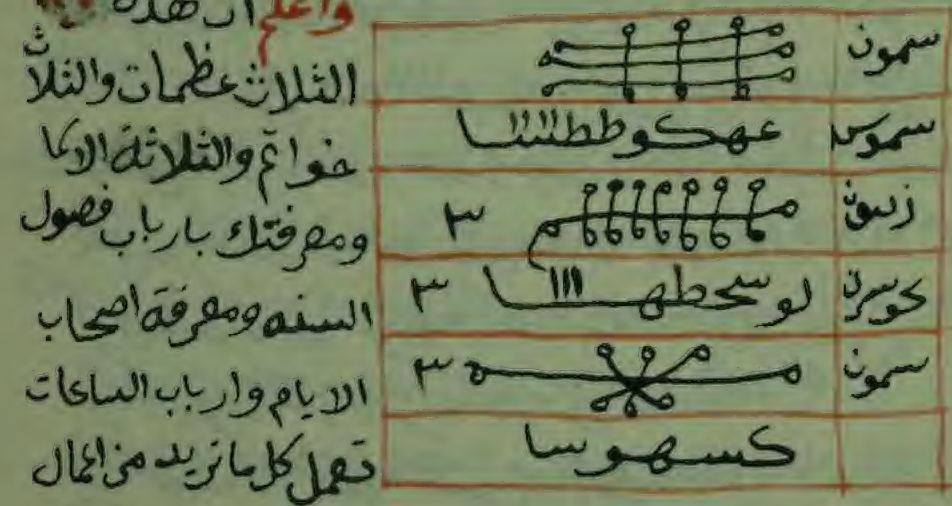 واعلم ان هذه
الثلاث عظمات والثلاث
خواتم والثلاثة الاسما
ومعرفتك بارباب فصول
السنه ومعرفة اصحاب
الايام وارباب الساعات
تعمل كل ما تريد من اعمال
سمون
سموس عهكوططشا
زسون ٣
لوسحطها ٣
سمون ٣
كسهوسا